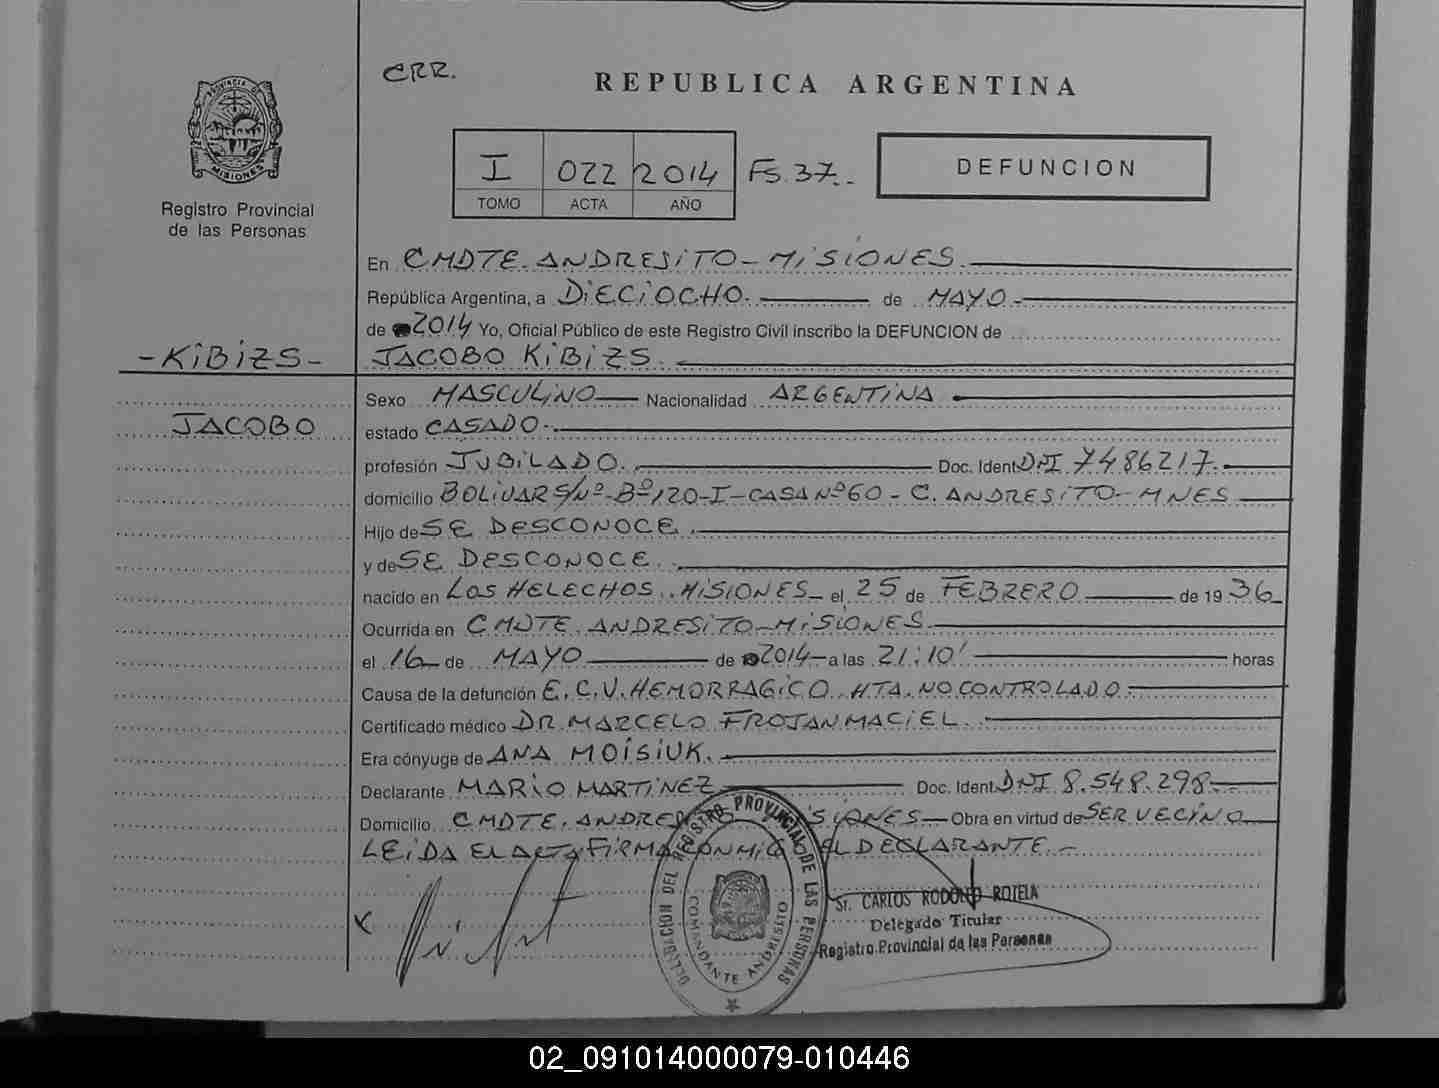 CRR.
REPUBLICA ARGENTINA
PROVINCIA DE
MISIONES
Registro Provincial
de las Personas
I 022 2014 Fs. 37.
TOMO ACTA AÑO
DEFUNCION
En CMDTE. ANDRESITO - MISIONES.
República Argentina, a DIECIOCHO. de MAYO.
de 2014 Yo, Oficial Público de este Registro Civil inscribo la DEFUNCION de
- KIBIZS - JACOBO KIBIZS.
Sexo MASCULINO Nacionalidad ARGENTINA
JACOBO estado CASADO.
profesión JUBILADO. Doc. Ident DNI 7486217.
domicilio BOLIVAR S/Nº - Bº 120 - I - CASA Nº 60 - C. ANDRESITO - MNES
Hijo de SE DESCONOCE.
y de SE DESCONOCE.
nacido en LOS HELECHOS. MISIONES el 25 de FEBRERO de 19 36
Ocurrida en CMDTE. ANDRESITO - MISIONES.
el 16 de MAYO de 2014 a las 21:10' horas
Causa de la defunción E.C.V. HEMORRAGICO. HTA. NO CONTROLADO.
Certificado médico DR. MARCELO FROJAN MACIEL.
Era cónyuge de ANA MOISIUK.
Declarante MARIO MARTINEZ Doc. Ident DNI 8.548.298.
Domicilio CMDTE. ANDRESITO SIONES Obra en virtud de SER VECINO
LEIDA EL ACTA FIRMA CONMIGO EL DECLARANTE. -
DELEGACION DEL REGISTRO PROVINCIAL DE LAS PERSONAS
COMANDANTE ANDRESITO
Sr. CARLOS RODOLFO ROTELA
Delegado Titular
Registro Provincial de las Personas
02_091014000079-010446